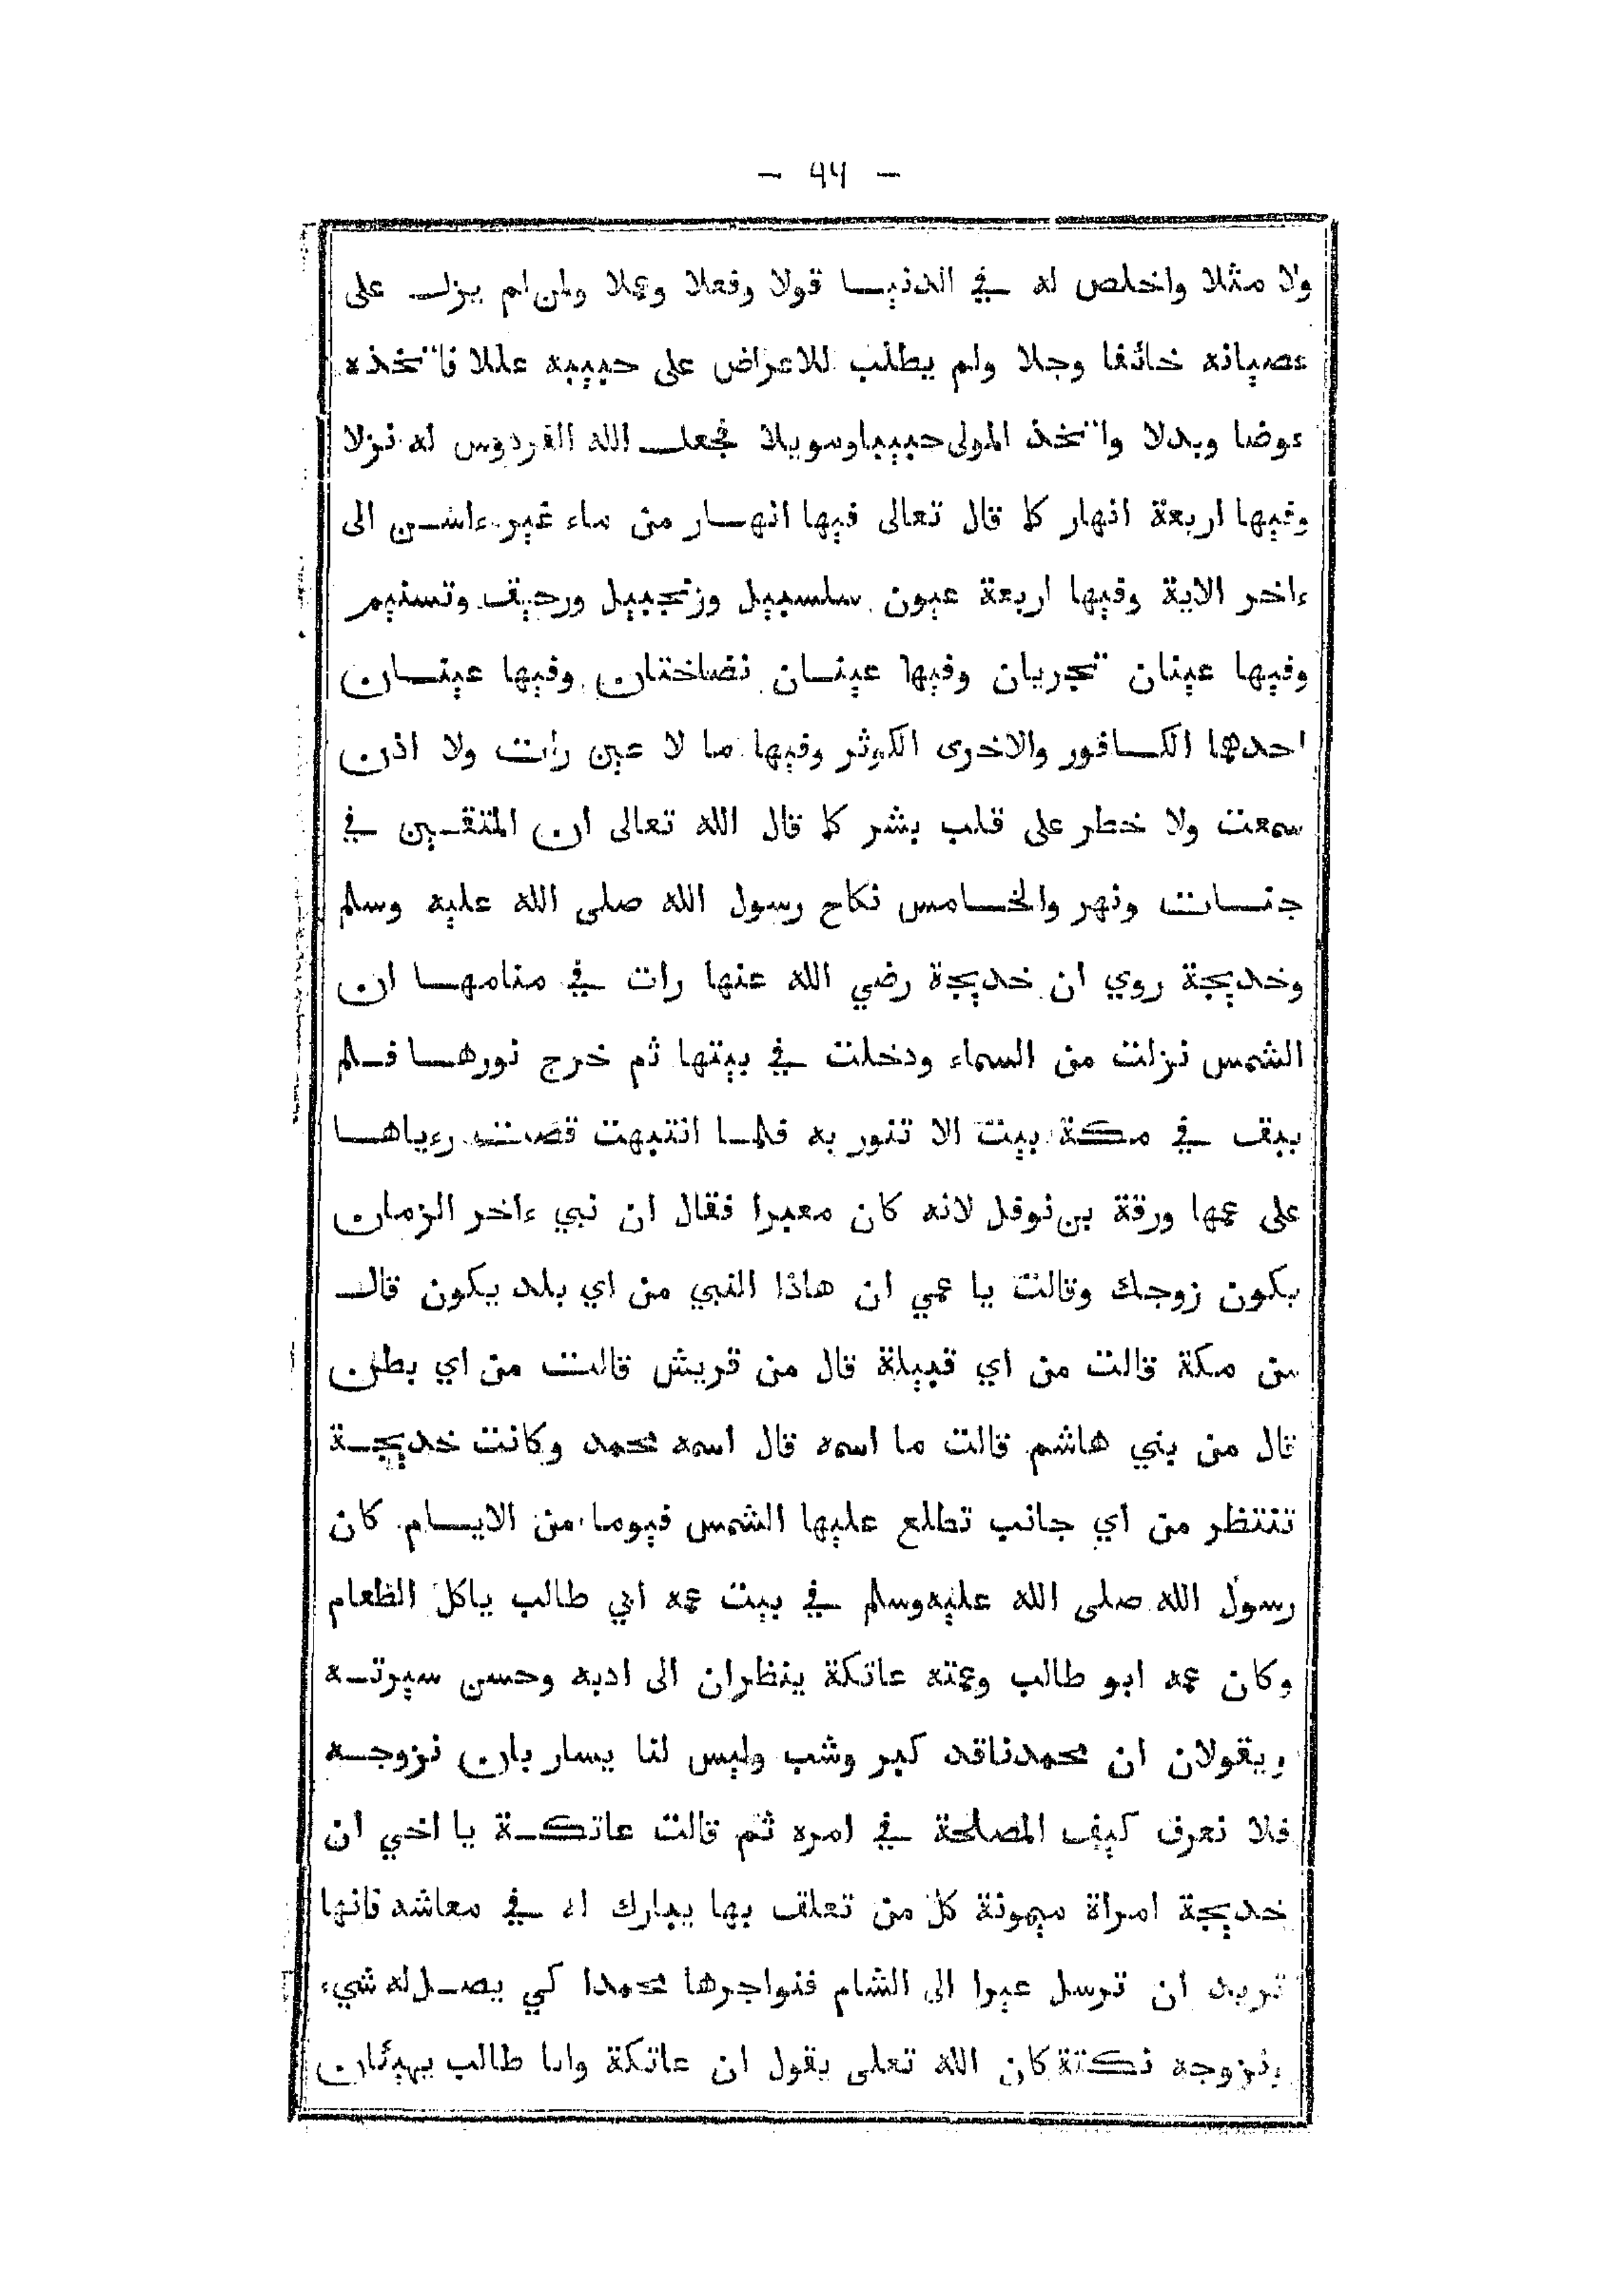 — ٩٩ —
ولا مثلا واخلص له في الدنيا قولا وفعلا وعملا ولمن لم يزل على
عصيانه خائفا وجلا ولم يطلب للاعراض على حبيبه عللا فاتخذه
عوضا وبدلا واتخذ المولى حبيبا وسويلا فجعل الله الفردوس له نزلا
وفيها اربعة انهار كما قال تعالى فيها انهار من ماء غير ءاسن الى
ءاخر الاية وفيها اربعة عيون سلسبيل وزنجبيل ورحيق وتسنيم
وفيها عينان تجريان وفيها عينان نضاختان وفيها عينان
احدهما الكافور والاخرى الكوثر وفيها ما لا عين رات ولا اذن
سمعت ولا خطر على قلب بشر كما قال الله تعالى ان المتقين في
جنات ونهر والخامس نكاح رسول الله صلى الله عليه وسلم
وخديجة روي ان خديجة رضي الله عنها رات في منامها ان
الشمس نزلت من السماء ودخلت في بيتها ثم خرج نورها فلم
يبق في مكة بيت الا تنور به فلما انتبهت قصت رءياها
على عمها ورقة بن نوفل لانه كان معبرا فقال ان نبي ءاخر الزمان
يكون زوجك وقالت يا عمي ان هاذا النبي من اي بلد يكون قال
من مكة قالت من اي قبيلة قال من قريش قالت من اي بطن
قال من بني هاشم قالت ما اسمه قال اسمه محمد وكانت خديجة
تنتظر من اي جانب تطلع عليها الشمس فيوما من الايام كان
رسول الله صلى الله عليه وسلم في بيت عمه ابي طالب ياكل الطعام
وكان عمه ابو طالب وعمته عاتكة ينظران الى ادبه وحسن سيرته
ويقولان ان محمدنا قد كبر وشب وليس لنا يسار بان نزوجه
فلا نعرف كيف المصلحة في امره ثم قالت عاتكة يا اخي ان
خديجة امراة ميمونة كل من تعلق بها يبارك له في معاشه فانها
تريد ان ترسل عيرا الى الشام فنواجرها محمدا كي يصل له شيء
ونزوجه نكتة كان الله تعلى يقول ان عاتكة وابا طالب يهيئان